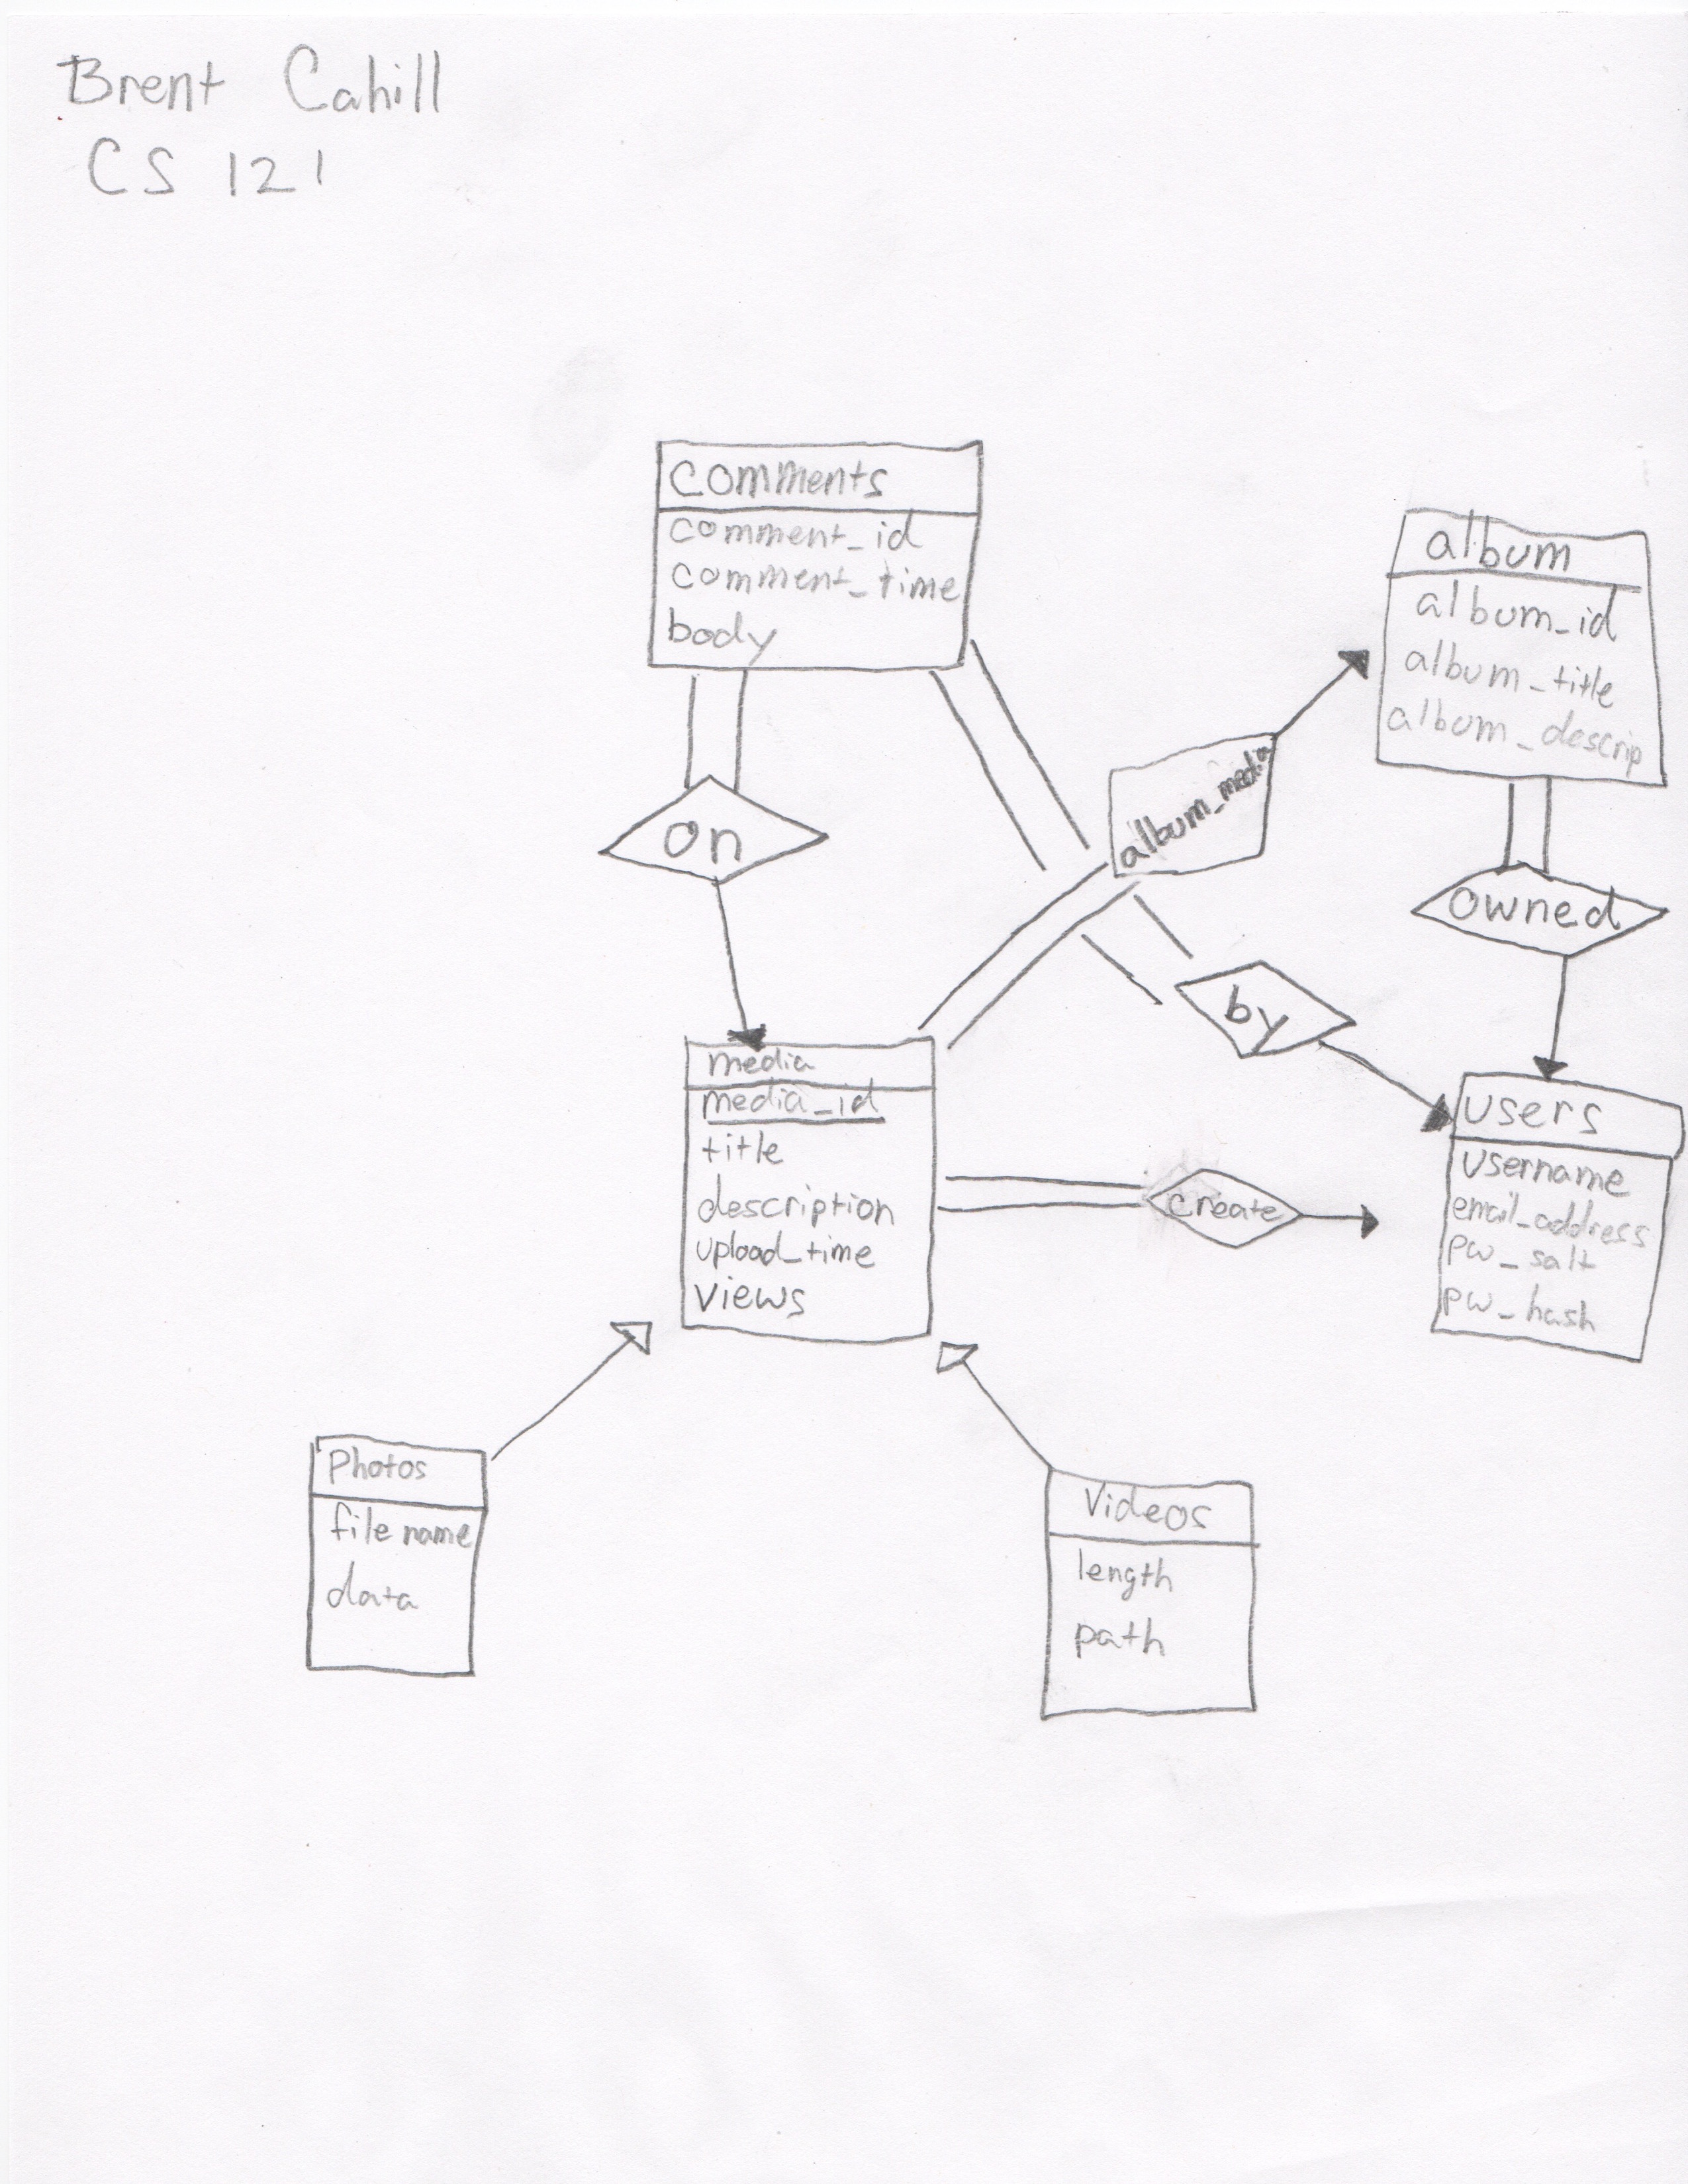 Brent Cahill
CS 121
comments
comment_id
comment_time
body
album
album_id
album_title
album_descrip
album_media
on
owned
by
media
media_id
title
description
upload_time
views
create
users
username
email_address
pw_salt
pw_hash
Photos
file name
data
Videos
length
path